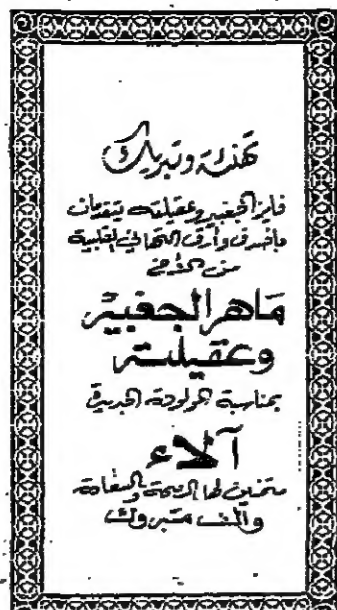 تهنئة وتبريك
فايز الجغبير وعقيلته يتقدمان
بأصدق وأرق التهاني القلبية
من الأخ
ماهر الجغبير
وعقيلته
بمناسبة المولودة الجديدة
آلاء
متمنين لها الصحة والسعادة
والف مبروك